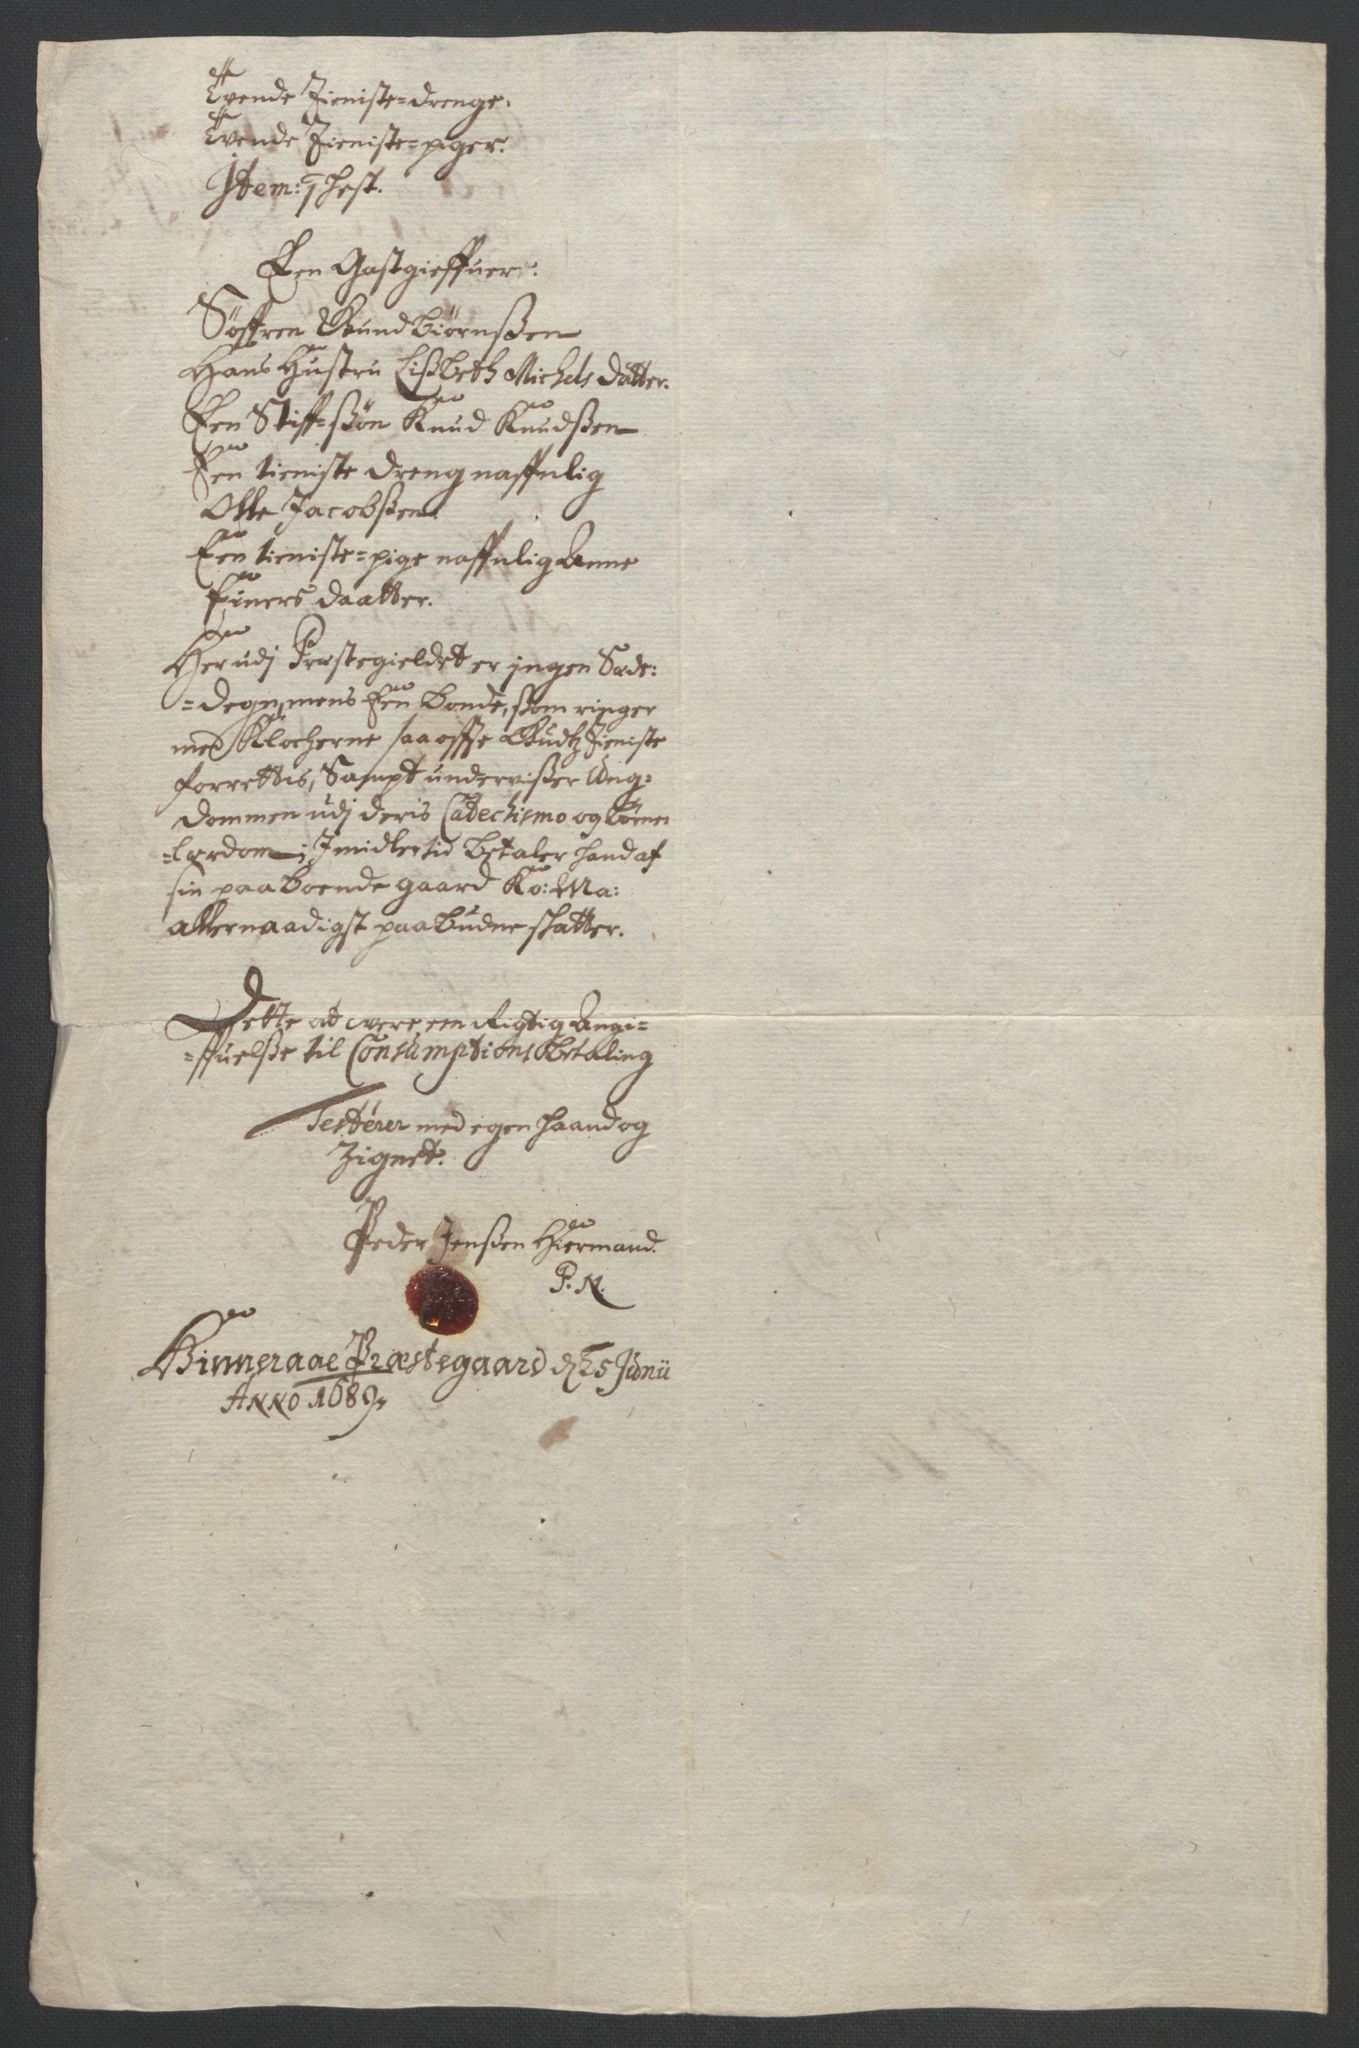 Tvende Tieniste=drenge.
Tvende Tieniste=piger.
Item: 1 hest.
Een Gastgieffuer.
Søffren Gundbiørnßen
Hans Hustru Lißbeth Michels datter.
Een Stiff=ßøn Knud Knudßen
Een tieniste dreng naffnlig
Olle Jacobßen.
Een tieniste=pige naffnlig Anne
Einers daatter.
Her udj Præstegieldet er jngen Sæde=
=degn, mens Een bonde, ßom ringer
med Klocherne saa offte Gudtz Tieniste
forrettis, Sampt undervißer Ung=
dommen udj deris Catechismo og Børne
=lærdom; Jmidlertid betaler hand af
sin paaboende gaard Ko: Ma:
allernaadigst paabudne skatter.
Dette at være een Rigtig Angi=
=ffuelße til Consumptions betaling
Testerer med egen haand og
Zignet.
Peder Jenßen Hiermand.
P. N.
Ginneraae Præstegaard d 25 Junii
ANNO 1689.